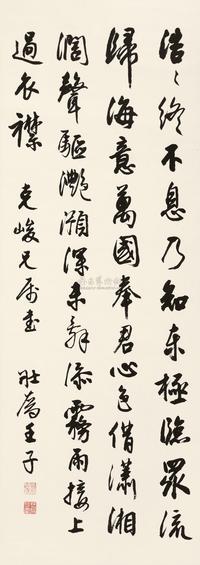 浩〻終不息乃知東極臨眾流
歸海意萬國奉君心色借瀟湘
闊聲驅灩澦深未辭添霧雨接上
過衣襟 克峻兄屬書 壯為王子